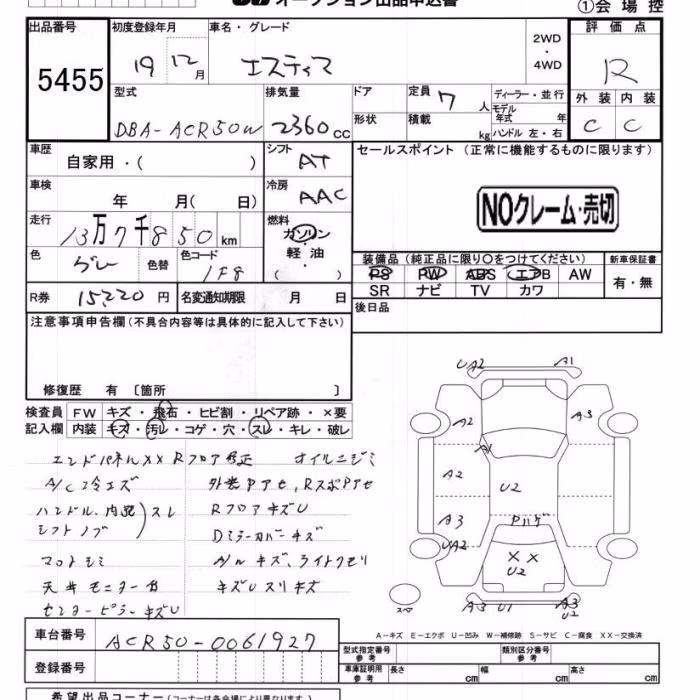 オークション出品申込書
①会場控
出品番号 初度登録年月 車名・グレード 2WD ・ 4WD 評価点
5455 19 12月 エスティマ R
型式 排気量 ドア 定員 7 人 ディーラー・並行 外装 内装
モデル年式 年
DBA-ACR50W 2360cc 形状 積載 kg ハンドル 左・右 C C
車歴 自家用・( ) シフト AT セールスポイント (正常に機能するものに限ります)
車検 年 月( 日) 冷房 AAC
NOクレーム・売切
走行 13万7千850km 燃料 ガソリン・軽油・( )
色 グレー 色替 色コード 1F8
装備品(純正品に限り○をつけてください) 新車保証書
PS PW ABS エアB AW 有・無
SR ナビ TV カワ
R券 15,220円 名変通知期限 月 日
後日品
注意事項申告欄(不具合内容等は具体的に記入して下さい)
修復歴 有 〔箇所 〕
検査員 FW キズ・飛石・ヒビ割・リペア跡・×要
記入欄 内装 キズ・汚レ・コゲ・穴・スレ・キレ・破レ
エンドパネルXX Rフロア修正 オイルニジミ
A/C冷エズ 外装Pアセ,RスポPアセ
ハンドル、内張 シフトノブ )スレ RフロアキズU
Dミラーカバーキズ
マットシミ A/Wキズ、ライトクモリ
天井モニターB キズUスリキズ
センターピラーキズU
UA2 A1
A2 A1 A3
A2 U2
A3 Pハゲ
UA2 XX
U2
スペア A3 U1 A3
U2
A-キズ E-エクボ U-凹み W-補修跡 S-サビ C-腐食 XX-交換済
車台番号 ACR50-0061927
型式指定番号 参考 類別区分番号 参考
登録番号 車庫証明用 参考 長さ cm 幅 cm 高さ cm
希望出品コーナー(コーナーは各会場により異なります。)